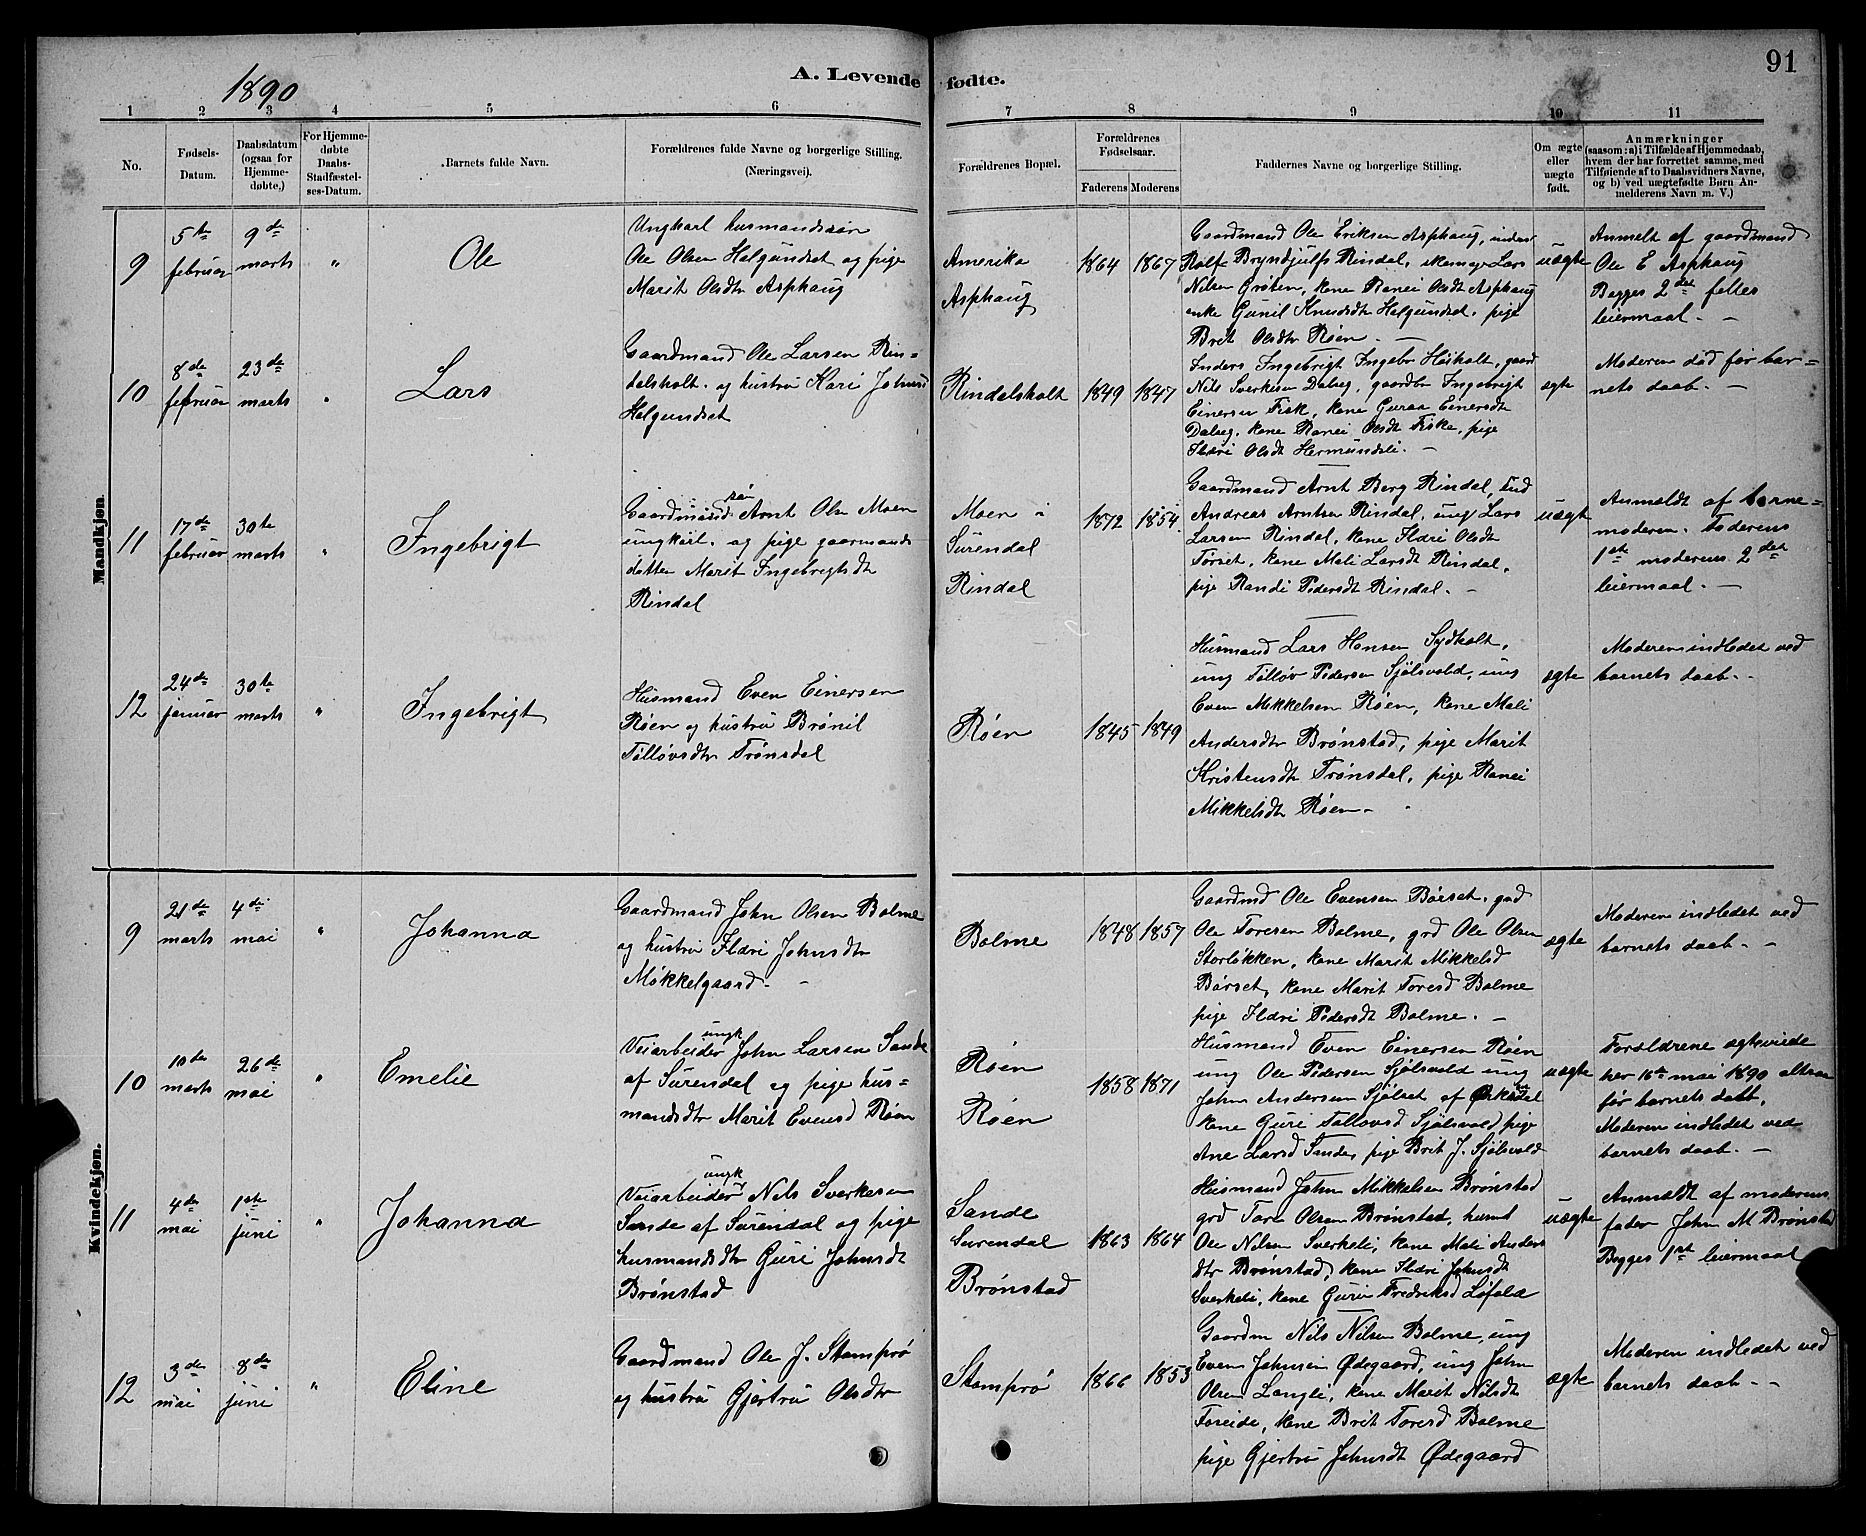 1890
A. Levende fødte.
91
1 2 3 4 5 6 7 8 9 10 11
No.
Fødsels-
Datum.
Daabsdatum
(ogsaa for
Hjemme-
døbte,)
For Hjemme-
døbte
Daabs-
Stadfæstel-
ses-Datum.
Barnets fulde Navn.
Forældrenes fulde Navne og borgerlige Stilling.
(Næringsvei).
Forældrenes Bopæl.
Forældrenes
Fødselsaar.
Faderens Moderens
Faddernes Navne og borgerlige Stilling.
Om ægte
eller
uægte
født.
Anmærkninger
(saasom: a) i Tilfælde af Hjemmedaab,
hvem der har forrettet samme, med
Tilføiende af to Daabsvidners Navne,
og b) ved uægtefødte Børn An-
melderens Navn m. V.)
Mandkjøn.
9
5te
februar
9de
marts
"
Ole
Ungkarl husmandssøn
Ole Olsen Helgundset og pige
Marit Olsdtr Asphaug
Amerika
Asphaug
1864 1867
Gaardmand Ole Eriksen Asphaug, inders
Rolf Bryndjulfs Rindal, Lars
Nilsen Grøten, kone Ranei Olsdt Asphaug
enke Gunil Knudsdt Helgundset, pige
Brit Olsdtr Røen. —
uægte
Anmelt af gaardmand
Ole E Asphaug
Begges 2det fælles
leiermaal. —
10
8de
februar
23de
marts
"
Lars
Gaardmand Ole Larsen Rin=
dalsholt. og hustru Kari Johnsd
Helgundset
Rindalsholt
1849 1847
Inders Ingebrigt Ingebr Høiholt, gaard
Nils Sverkesen Dalseg, gaardbr Ingebrigt
Einersen Fisk, kone Guraa Einersdt
Dalseg, kone Ranei Olsdt Fiske, pige
Ildri Olsdt Hermundsli. —
ægte
Moderen død før bar=
nets daab. —
11
17de
februar
30te
marts
"
Ingebrigt
Gaardmands søn Arnt Olsen Moen
ungkarl. og pige gaarmands
datter Marit Ingebrigtsdt
Rindal
Moen i
Surendal
Rindal
1872 1854
Gaardmand Arnt Berg Rindal,
Andreas Arntsen Rindal, ung Lars
Larsen Rindal, kone Ildri Olsdt
Torset, kone Mali Larsdt Rindal,
pige Randi Pedersdt Rindal. —
uægte
Anmeldt af barne=
moderen. Faderens
1ste moderens 2det
leiermaal. —
12
24de
januar
30te
marts
"
Ingebrigt
Husmand Even Einersen
Røen og hustru Brønil
Tølløvsdtr Trønsdal
Røen
1845 1849
Husmand Lars Hansen Sydholt,
ung Tølløv Pedersen Sjølsvold, ung
Even Mikkelsen Røen, kone Mali
Andersdtr Brønstad, pige Marit
Kristensdtr Trønsdal, pige Ranei
Mikkelsdtr Røen. -
ægte
Moderen indledet ved
barnets daab. -
Kvindekjøn.
9
21de
marts
4de
mai
"
Johanna
Gaardmand John Olsen Bolme
og hustru Ildri Johnsdtr
Møkkelgaard. -
Bolme
1848 1857
Gaardmd Ole Evensen Børset, grd
Ole Toresen Bolme, grd Ole Olsen
Storløkken, kone Marit Mikkelsd
Børset, kone Marit Toresd Bolme
pige Ildri Pedersdt Bolme. —
ægte
Moderen indledet ved
barnets daab. - -
10
10de
marts
26de
mai
"
Emelie
Veiarbeider ungk John Larsen Sande
af Surendal og pige hus=
mandsdtr Marit Evensd Røen
Røen
Røen
1858 1871
Husmand Even Einersen Røen
ung Ole Pedersen Sjølsvold ung
John Andersen Sjølset af Ørkedal
kone Guri Tølløvsd Sjølsvold, pige
Ane Larsd Sande, pige Brit J. Sjølsvold
uægte
Forældrene ægteviede
her 16de mai 1890 altsaa
før barnets daab,
Moderen indledet ved
barnets daab. —
11
4de
mai
1ste
juni
"
Johanna
Veiarbeider ungk Nils Sverkesen
Sande af Surendal og pige
husmandsdtr Guri Johnsdt
Brønstad
Sande
Surendal
Brønstad
1863 1864
Husmand John Mikkelsen Brønstad
grd Tore Olsen Brønstad, husmd
Ole Nilsen Sverkeli, kone Mali Anders
dtr Brønstad, kone Ildri Johnsdt
Sverkeli, kone Guri Fredriksd Løfald
uægte
Anmeldt af moderens
fader John M Brønstad
Begges 1ste leiermaal
12
3de
mai
8de
juni
"
Eline
Gaardmand Ole J. Stomprø
og hustru Gjertru Olsdtr
Stomprø
1866 1853
Gaardm Nils Nilsen Bolme, ung
Even Johnsen Ødegaard, ung John
Olsen Langli, kone Marit Nilsdt
Foreide, kone Brit Toresd Bolme
pige Gjertru Johnsdt Ødegaard
ægte
Moderen indledet ved
barnets daab. - -